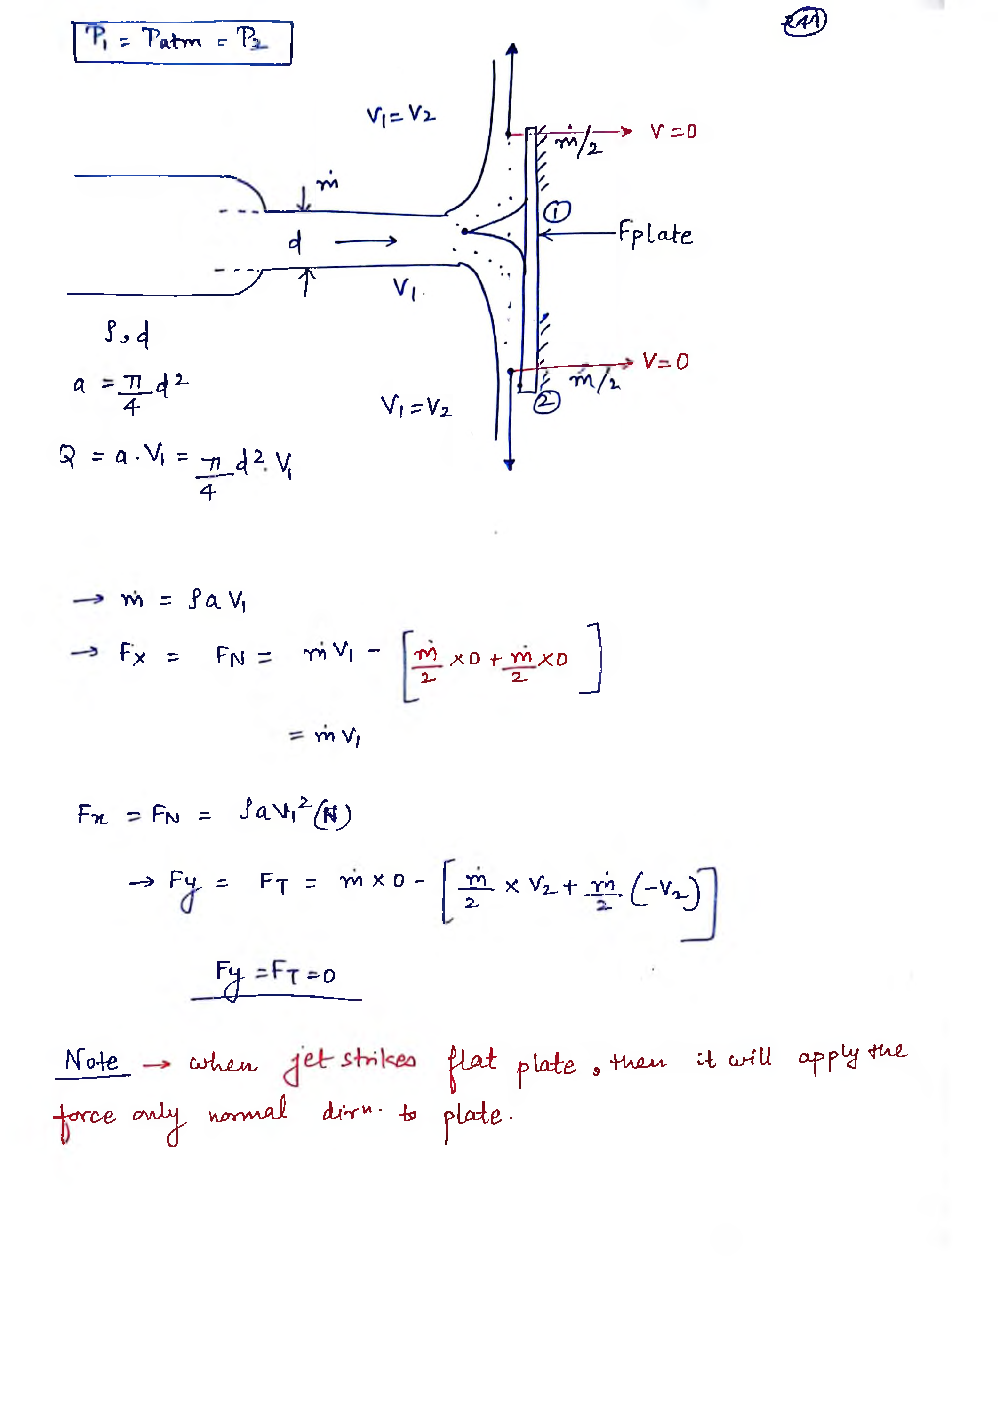 P₁ = Patm = P₂
V₁ = V₂
ṁ/2
V = 0
ṁ
①
d
Fplate
V₁
ρ, d
V = 0
ṁ/2
a = π/4 d²
V₁ = V₂
②
Q = a . V₁ = π/4 d² . V₁
→ ṁ = ρ a V₁
→ Fx = FN = ṁ V₁ - [ṁ/2 × 0 + ṁ/2 × 0]
= ṁ V₁
Fx = FN = ρ a V₁² (N)
→ Fy = FT = ṁ × 0 - [ṁ/2 × V₂ + ṁ/2 (-V₂)]
Fy = FT = 0
Note → when jet strikes flat plate, then it will apply the
force only normal dirn. to plate.